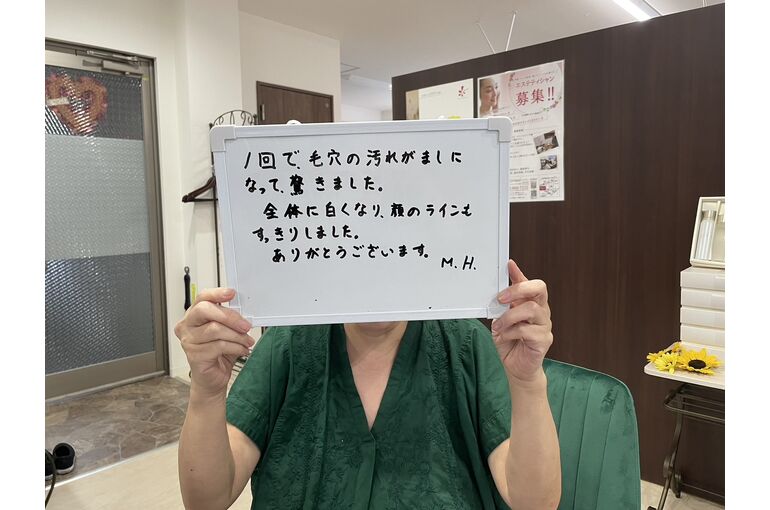 1回で、毛穴の汚れがましに
なって、驚きました。
全体に白くなり、顔のラインも
すっきりしました。
ありがとうございます。
M.H.
エステティシャン
募集!!